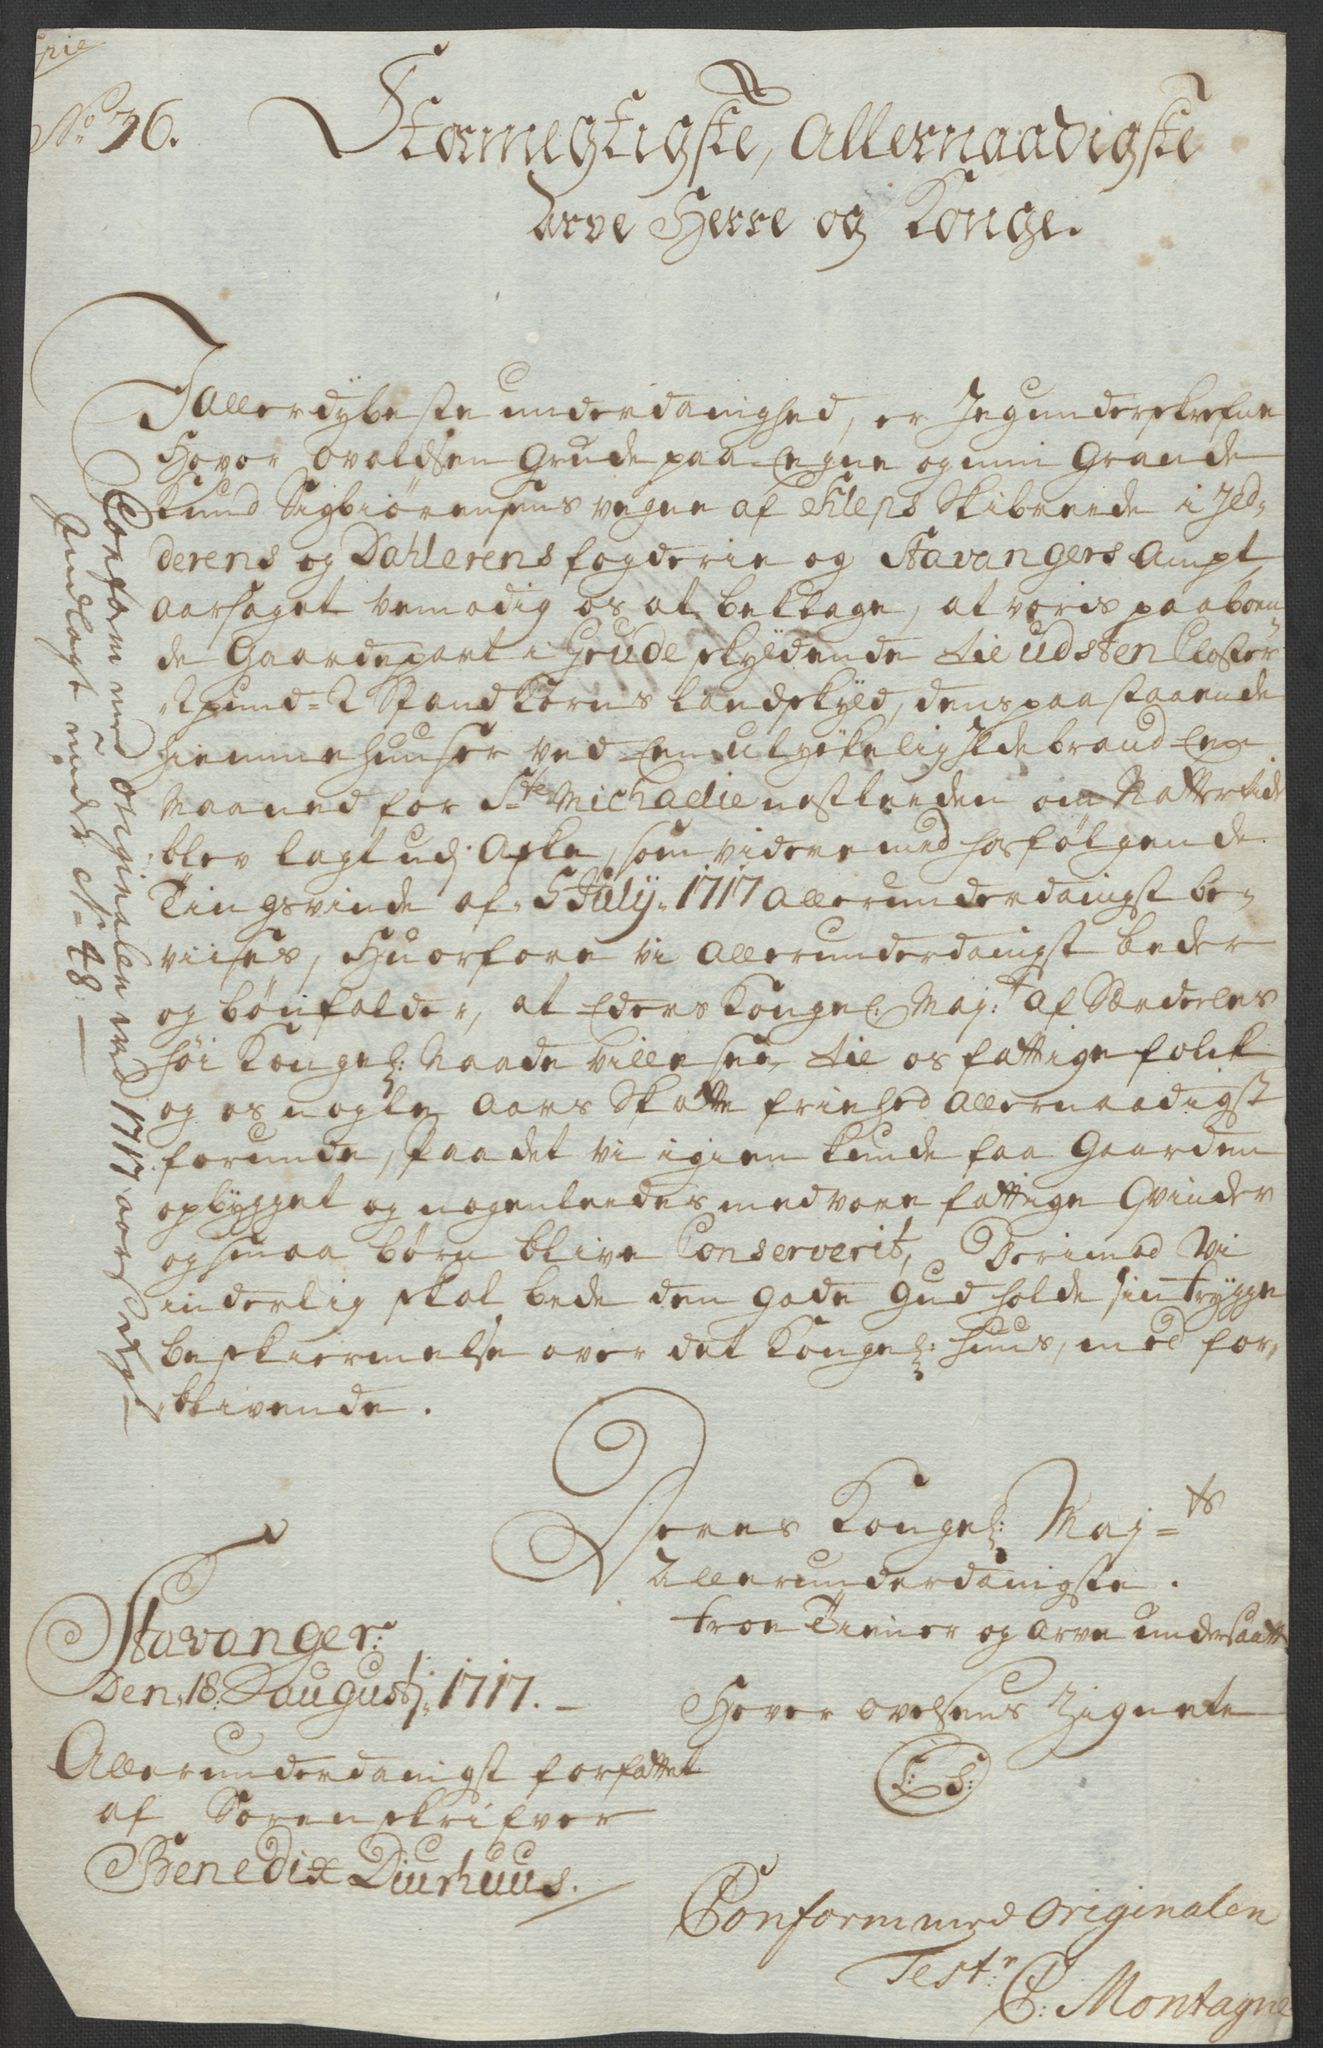 Copie
No 36.
Stormegtigste, Allernaadigste
Arve Herre og Konge.
I allerdybeste underdanighed, er Jeg underskrefne
Hover ovaldsen Grude paa Egne og min Grande
Knud Sigbiørensens vegne af Kleps Skibreede i Jed-
derens og Dahlerens fogderie og Stavangers Ampt
aarsaget vemodig os at beklage, at voris paaboen-
de Gaardepart i Grude skyldende til udsten Closter
2 pund = 2 Spand Korns landskyld, dens paastaaende
hiemmehuuser ved En ulykkelig Ildebrand En
Maaned for Ste Michaelie nestleeden om Nattertide
blev lagt udj Aske, som videre med hosfølgende
Tingsvinde af 5 July 1717 allerunderdanigst be-
viises, Huorfore vi allerunderdanigst beder
og bønfalder, at Eders Kongel: Maj:t af Særdeeles
høi Kongel: Naade ville see til os fattige folk
og os nogle Aars Skatte friehed Allernaadigst
forunde, Paa det vi igien kunde faa Gaarden
opbygget og nogenleedes med vore fattige Qvinder
og smaa børn blive Conserverit, Derimod Vi
inderlig skal bede den gode Gud holde sin trygge
beskiermelse over det Kongel: Huus, med for-
blivende.
Deres Kongel: Maj=ts
Allerunderdanigste.
troe Tiener og arve undersaatt
Hover ovelsens Zignete
L: S:
Stavanger:
Den 18 augustj: 1717.
Allerunderdanigst forfattet
af Sorenskrifver
Benedix Diurhuus.
Conform med Originalen
Test:
C: Montagne
Conform med Originalen ved 1717 aars
Indlagt under No 48: